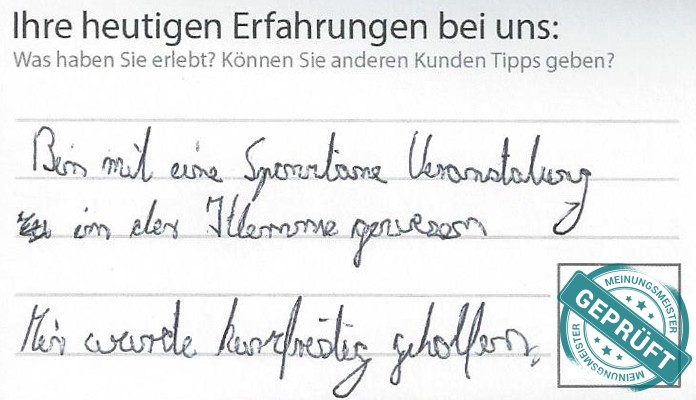 Ihre heutigen Erfahrungen bei uns:
Was haben Sie erlebt? Können Sie anderen Kunden Tipps geben?
Bin mit eine Sponntane Veranstalung
in der Klemme gewesen
Mir wurde kurzfristig geholfen.
MEINUNGSMEISTER
GEPRÜFT
MEINUNGSMEISTER
MEINUNGSMEISTER